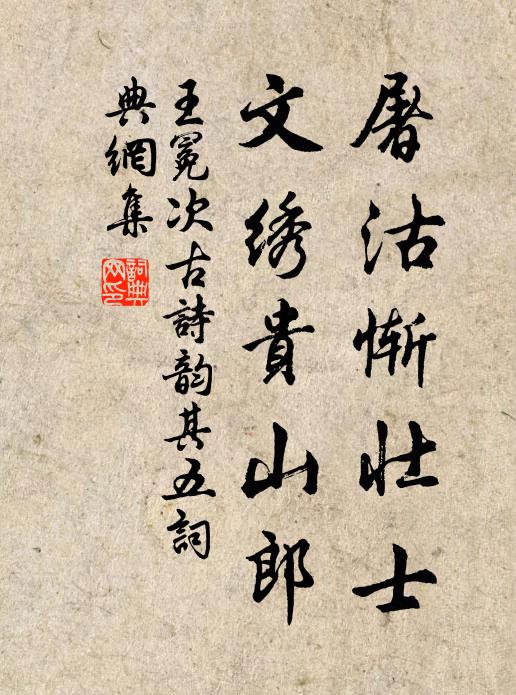 屠沽惭壮士
文绣貴山郎
王冕次古詩韵其五詞
典網集
詞典
网印